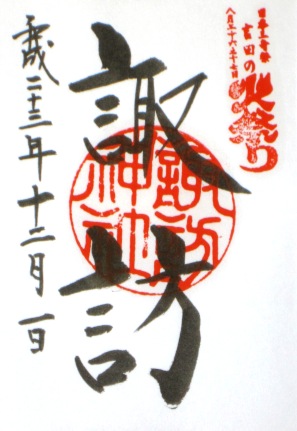 日本三奇祭
吉田の火祭り
八月二十六二十七日
諏訪
諏訪神社
平成二十三年十二月一日